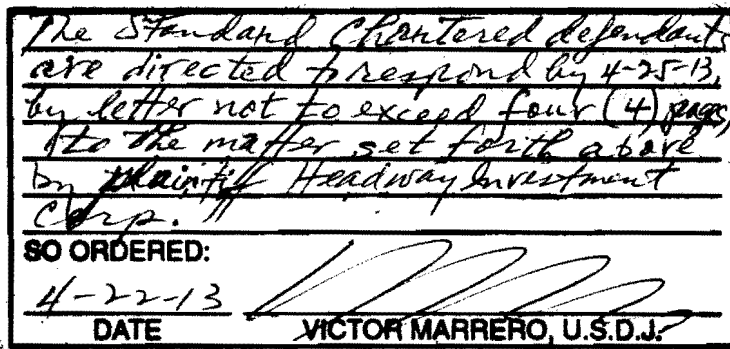 The Standard Chartered defendants
are directed to respond by 4-25-13,
by letter not to exceed four (4) pages,
to the matter set forth above
by plaintiff Headway Investment
Corp.
SO ORDERED:
4-22-13
DATE VICTOR MARRERO, U.S.D.J.